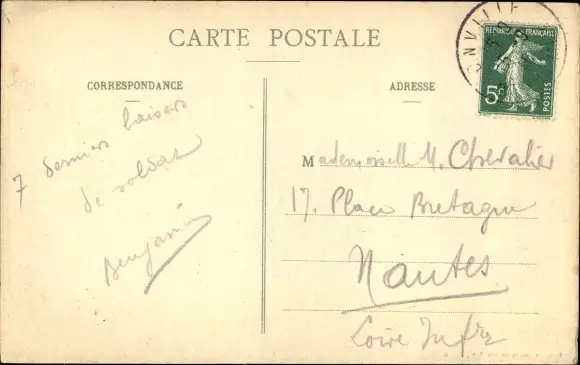 CARTE POSTALE
CORRESPONDANCE
7 derniers baisers
de soldat
Benjamin
ADRESSE
NVILLE
REPUBLIQUE FRANÇAISE
5c
POSTES
Mademoiselle M. Chevalier
17. Place Bretagne
Nantes
Loire Infre